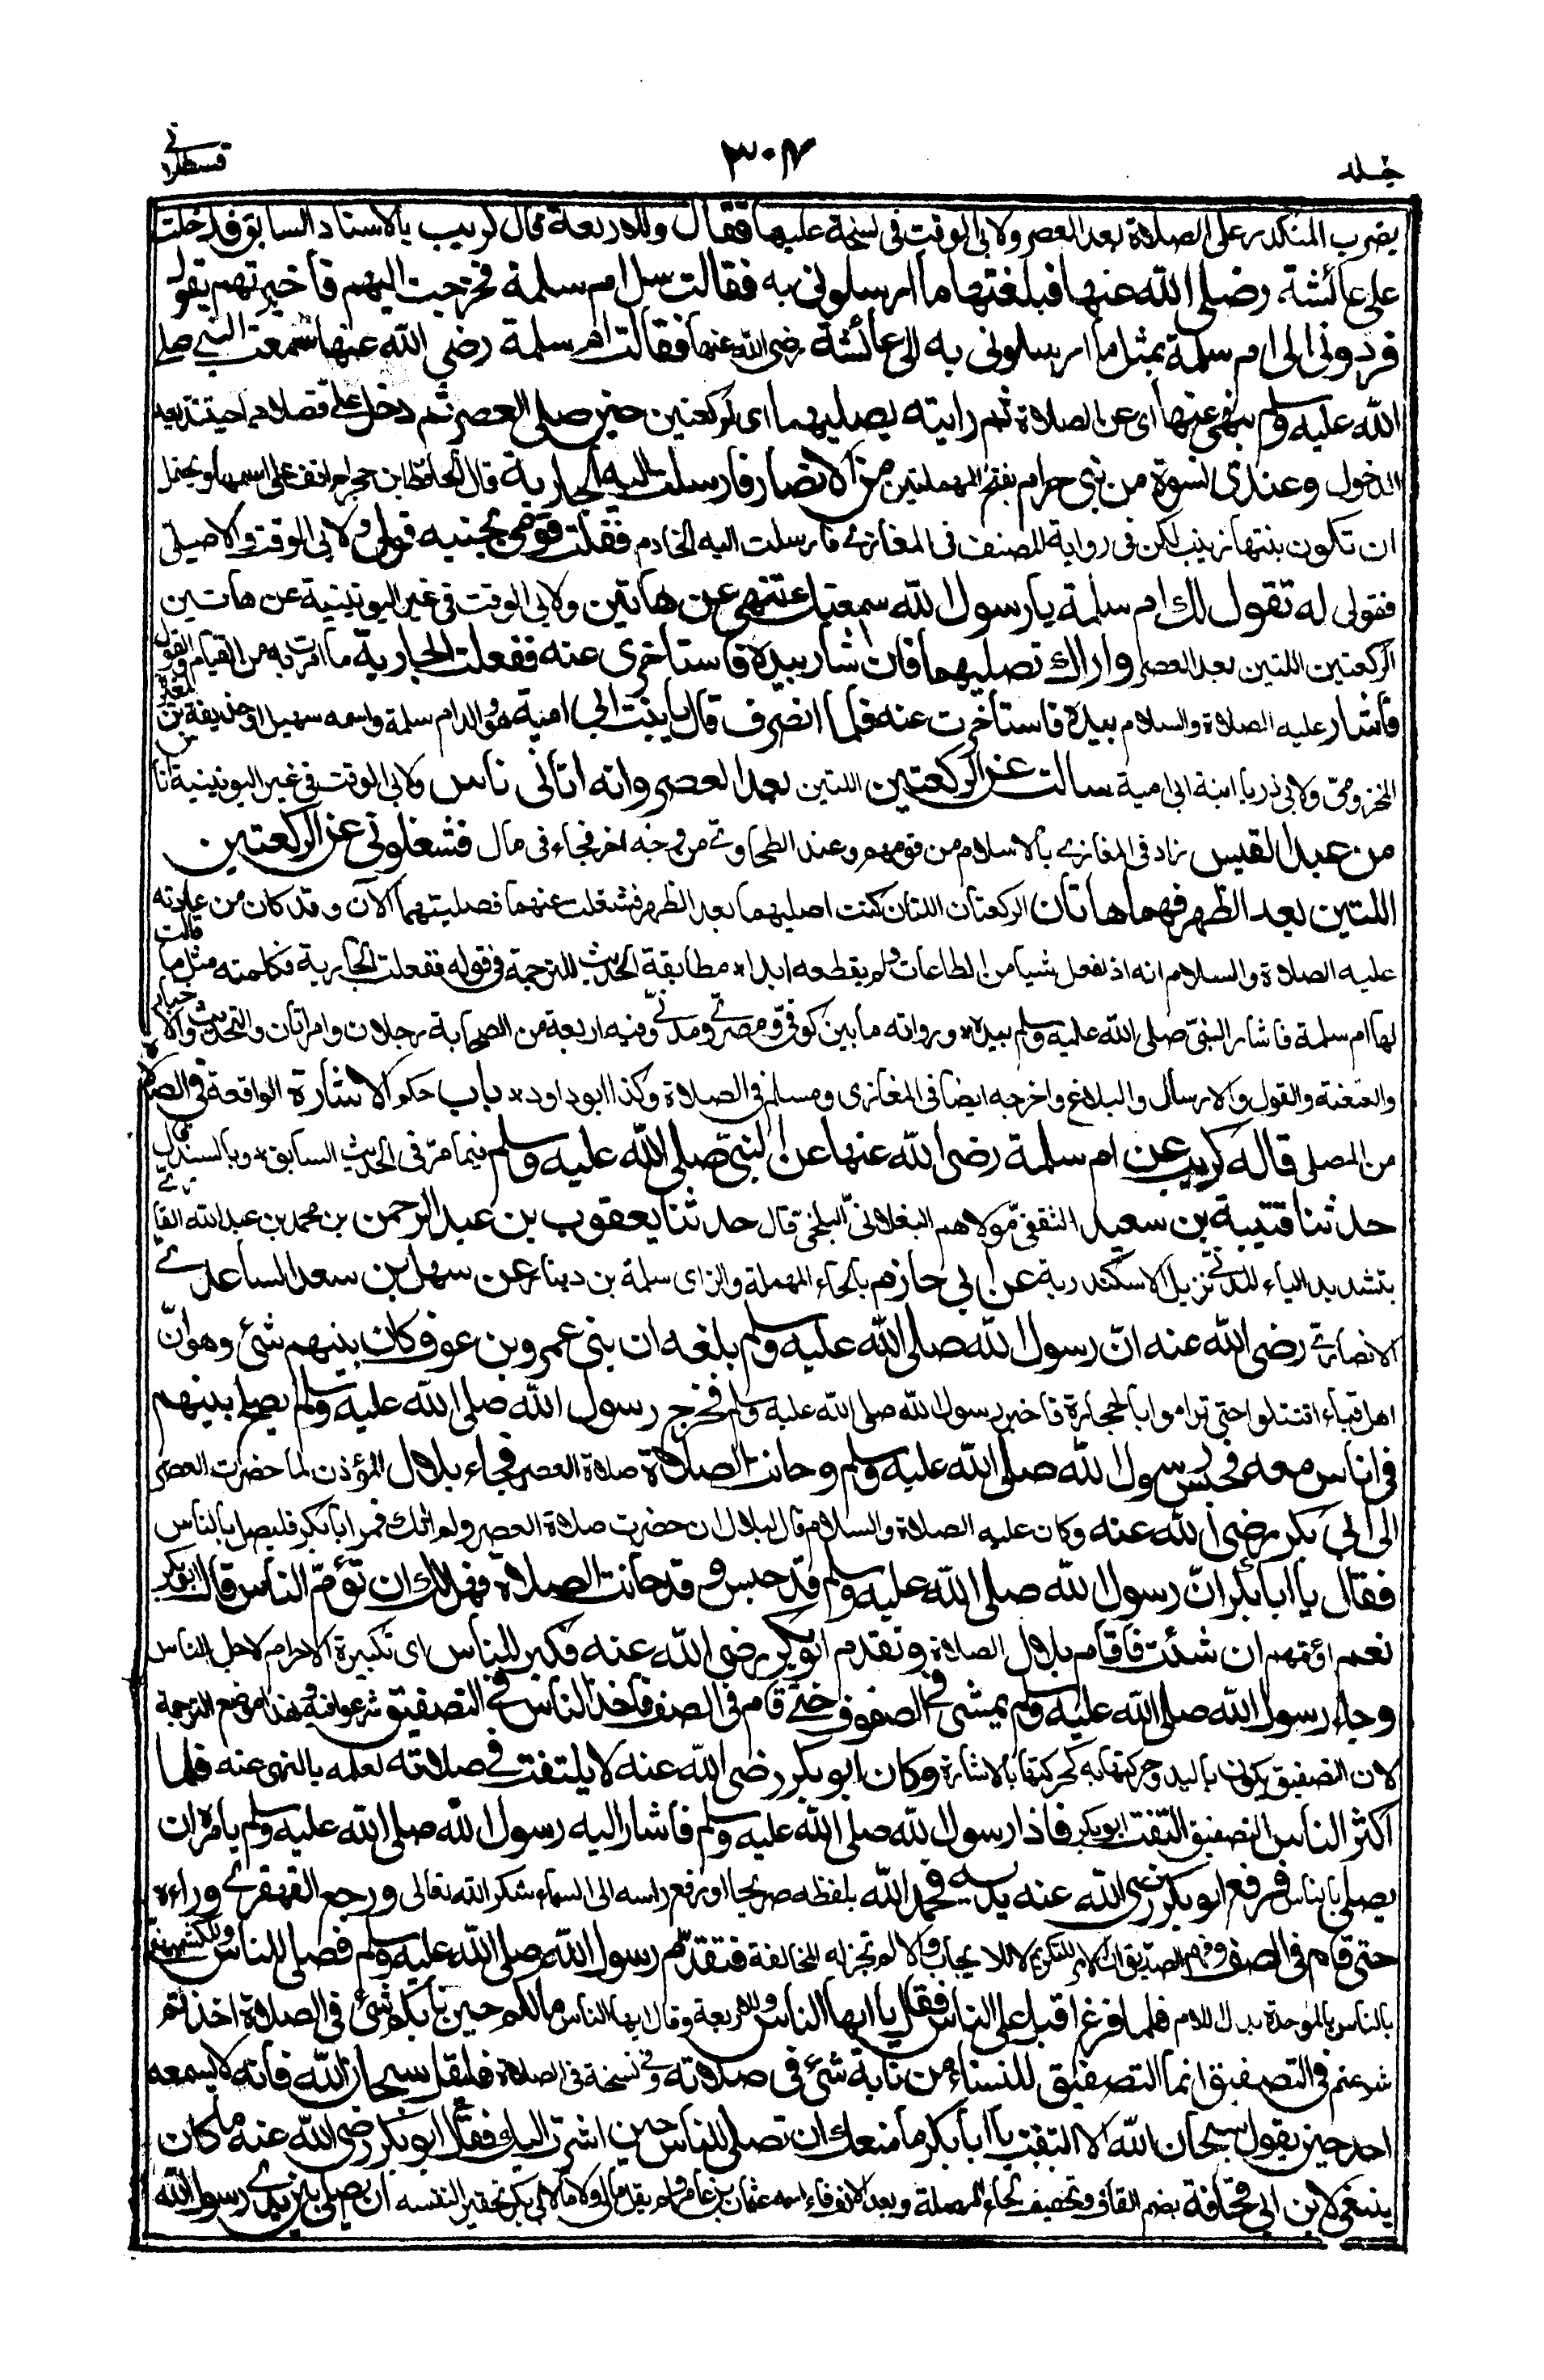 جلد ٣٠٧ قسطلانى
يضرب المنكدر على الصلاة بعد العصر ولابى الوقت فى نسخة عليها فقال وللاربعة قال كريب بالاسناد السابق فدخلت
على عائشة رضى الله عنها فبلغتها ما ارسلونى به فقالت سل ام سلمة فخرجت اليهم فأخبرتهم بقولها
فردونى الى ام سلمة بمثل ما ارسلونى به الى عائشة رضى الله عنها فقالت ام سلمة رضى الله عنها سمعت النبى صلى
الله عليه وسلم ينهى عنها اى عن الصلاة ثم رايته يصليهما اى الركعتين حين صلى العصر ثم دخل على فصلاهما حينئذ بعد
الدخول وعندى نسوة من بنى حرام بفتح المهملتين من الانصار فارسلت اليه الجارية قال الحافظ ابن حجر لم اقف على اسمها ويحتمل
ان تكون بنتها زينب لكن فى رواية المصنف فى المغازى فارسلت اليه الخادم فقلت قومى بجنبه قولى ولابى الوقت والاصيلى
فقولى له تقول لك ام سلمة يا رسول الله سمعتك تنهى عن هاتين ولابى الوقت فى غير اليونينية عن هاتين
الركعتين اللتين بعد العصر واراك تصليهما فان اشار بيده فاستأخرى عنه ففعلت الجارية ما امرت به من القيام والقول
فأشار عليه الصلاة والسلام بيده فاستأخرت عنه فلما انصرف قال يا بنت ابى امية هو والد ام سلمة واسمه سهيل او حذيفة بن المغيرة
المخزومى ولابى ذر يا ابنة ابى امية سالت عن الركعتين اللتين بعد العصر وانه اتانى ناس ولابى الوقت فى غير اليونينية اناس
من عبد القيس زاد فى المغازى بالاسلام من قومهم وعند الطحاوى من وجه اخر فجاءنى مال فشغلونى عن الركعتين
اللتين بعد الظهر فهما هاتان الركعتان اللتان كنت اصليهما بعد الظهر فشغلت عنهما فصليتهما الآن وقد كان من عادته
عليه الصلاة والسلام انه اذا فعل شيأ من الطاعات لم يقطعه ابدا * مطابقة الحديث للترجمة فى قوله ففعلت الجارية فكلمته مثل ما قالت
لها ام سلمة فاشار النبى صلى الله عليه وسلم بيده * ورواته ما بين كوفى ومصرى ومدنى وفيه اربعة من الصحابة رجلان وامراتان والتحديث والاخبار
والعنعنة والقول والارسال والبلاغ واخرجه ايضا فى المغازى ومسلم فى الصلاة وكذا ابو داود * باب حكم الاشارة الواقعة فى الصلاة
من المصلى قاله كريب عن ام سلمة رضى الله عنها عن النبى صلى الله عليه وسلم فيما مر فى الحديث السابق * وبالسند قال
حدثنا قتيبة بن سعيد الثقفى مولاهم البغلانى البلخى قال حدثنا يعقوب بن عبد الرحمن بن محمد بن عبد الله القارى
بتشديد الياء المدنى نزيل الاسكندرية عن ابى حازم بالحاء المهملة والزاى سلمة بن دينار عن سهل بن سعد الساعدى
الانصارى رضى الله عنه ان رسول الله صلى الله عليه وسلم بلغه ان بنى عمرو بن عوف كان بينهم شئ وهو ان
اهل قباء اقتتلوا حتى تراموا بالحجارة فاخبر رسول الله صلى الله عليه وسلم فخرج رسول الله صلى الله عليه وسلم يصلح بينهم
فى اناس معه فحبس رسول الله صلى الله عليه وسلم وحانت الصلاة صلاة العصر فجاء بلال المؤذن لما حضرت العصر
الى ابى بكر رضى الله عنه وكان عليه الصلاة والسلام قال لبلال ان حضرت صلاة العصر ولم اتك فمر ابا بكر فليصل بالناس
فقال يا ابا بكر ان رسول الله صلى الله عليه وسلم قد حبس وقد حانت الصلاة فهل لك ان تؤم الناس قال ابو بكر
نعم اؤمهم ان شئت فاقام بلال الصلاة وتقدم ابو بكر رضى الله عنه فكبر للناس اى تكبيرة الاحرام لاجل الناس
وجاء رسول الله صلى الله عليه وسلم يمشى فى الصفوف حتى قام فى الصف فاخذ الناس فى التصفيق شرعوا فيه وهذا موضع الترجمة
لان التصفيق يكون باليد وحركتها به كحركتها بالاشارة وكان ابو بكر رضى الله عنه لا يلتفت فى صلاته لعلمه بالنهى عنه فلما
اكثر الناس التصفيق التفت ابو بكر فاذا رسول الله صلى الله عليه وسلم فأشار اليه رسول الله صلى الله عليه وسلم يامره ان
يصلى بالناس فرفع ابو بكر رضى الله عنه يديه فحمد الله بلفظه صريحا او رفع راسه الى السماء شكرا لله تعالى ورجع القهقرى وراءه
حتى قام فى الصف وفهم الصديق ان الامر للتكريم لا للايجاب والا لم تجز له المخالفة فتقدم رسول الله صلى الله عليه وسلم فصلى للناس وللكشميهنى
بالناس بالموحدة بدل اللام فلما فرغ اقبل على الناس فقال يا ايها الناس وللاربعة وقال ايها الناس ما لكم حين نابكم شئ فى الصلاة اخذتم
شرعتم فى التصفيق انما التصفيق للنساء من نابه شئ فى صلاته وفى نسخة فى الصلاة فليقل سبحان الله فانه لا يسمعه
احد حين يقول سبحان الله الا التفت يا ابا بكر ما منعك ان تصلى للناس حين اشرت اليك فقال ابو بكر رضى الله عنه ما كان
ينبغى لابن ابى قحافة بضم القاف وتخفيف الحاء المهملة وبعد الالف فاء اسمه عثمان بن عامر ولم يقل ما لى ولا ما لابى بكر تحقيرا لنفسه ان يصلى بين يدى رسول الله